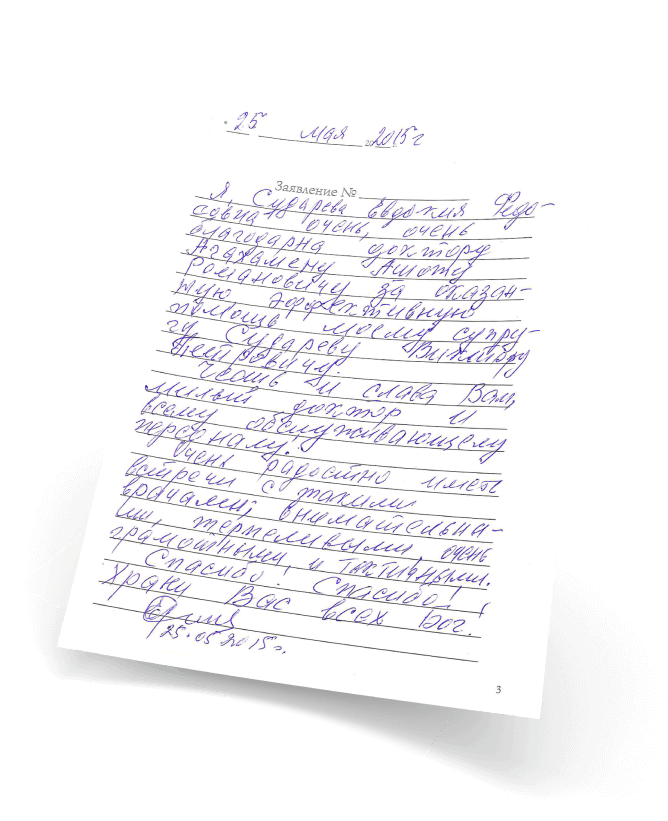 "25 мая 2015 г
Заявление №
Я, Сударева Евдокия Федо-
совна очень, очень
благодарна доктору
Агахамену Ашоту
Романовичу за оказан-
ную эффективную
помощь моему супру-
гу Судареву
Петровичу.
Честь и слава Вам,
милый доктор и
всему обслуживающему
персоналу!
Очень радостно иметь
встречи с такими
врачами, внимательны-
ми, терпеливыми, очень
грамотными, и тактичными.
Спасибо. Спасибо!
Храни Вас всех Бог!
25.05.2015г.
3